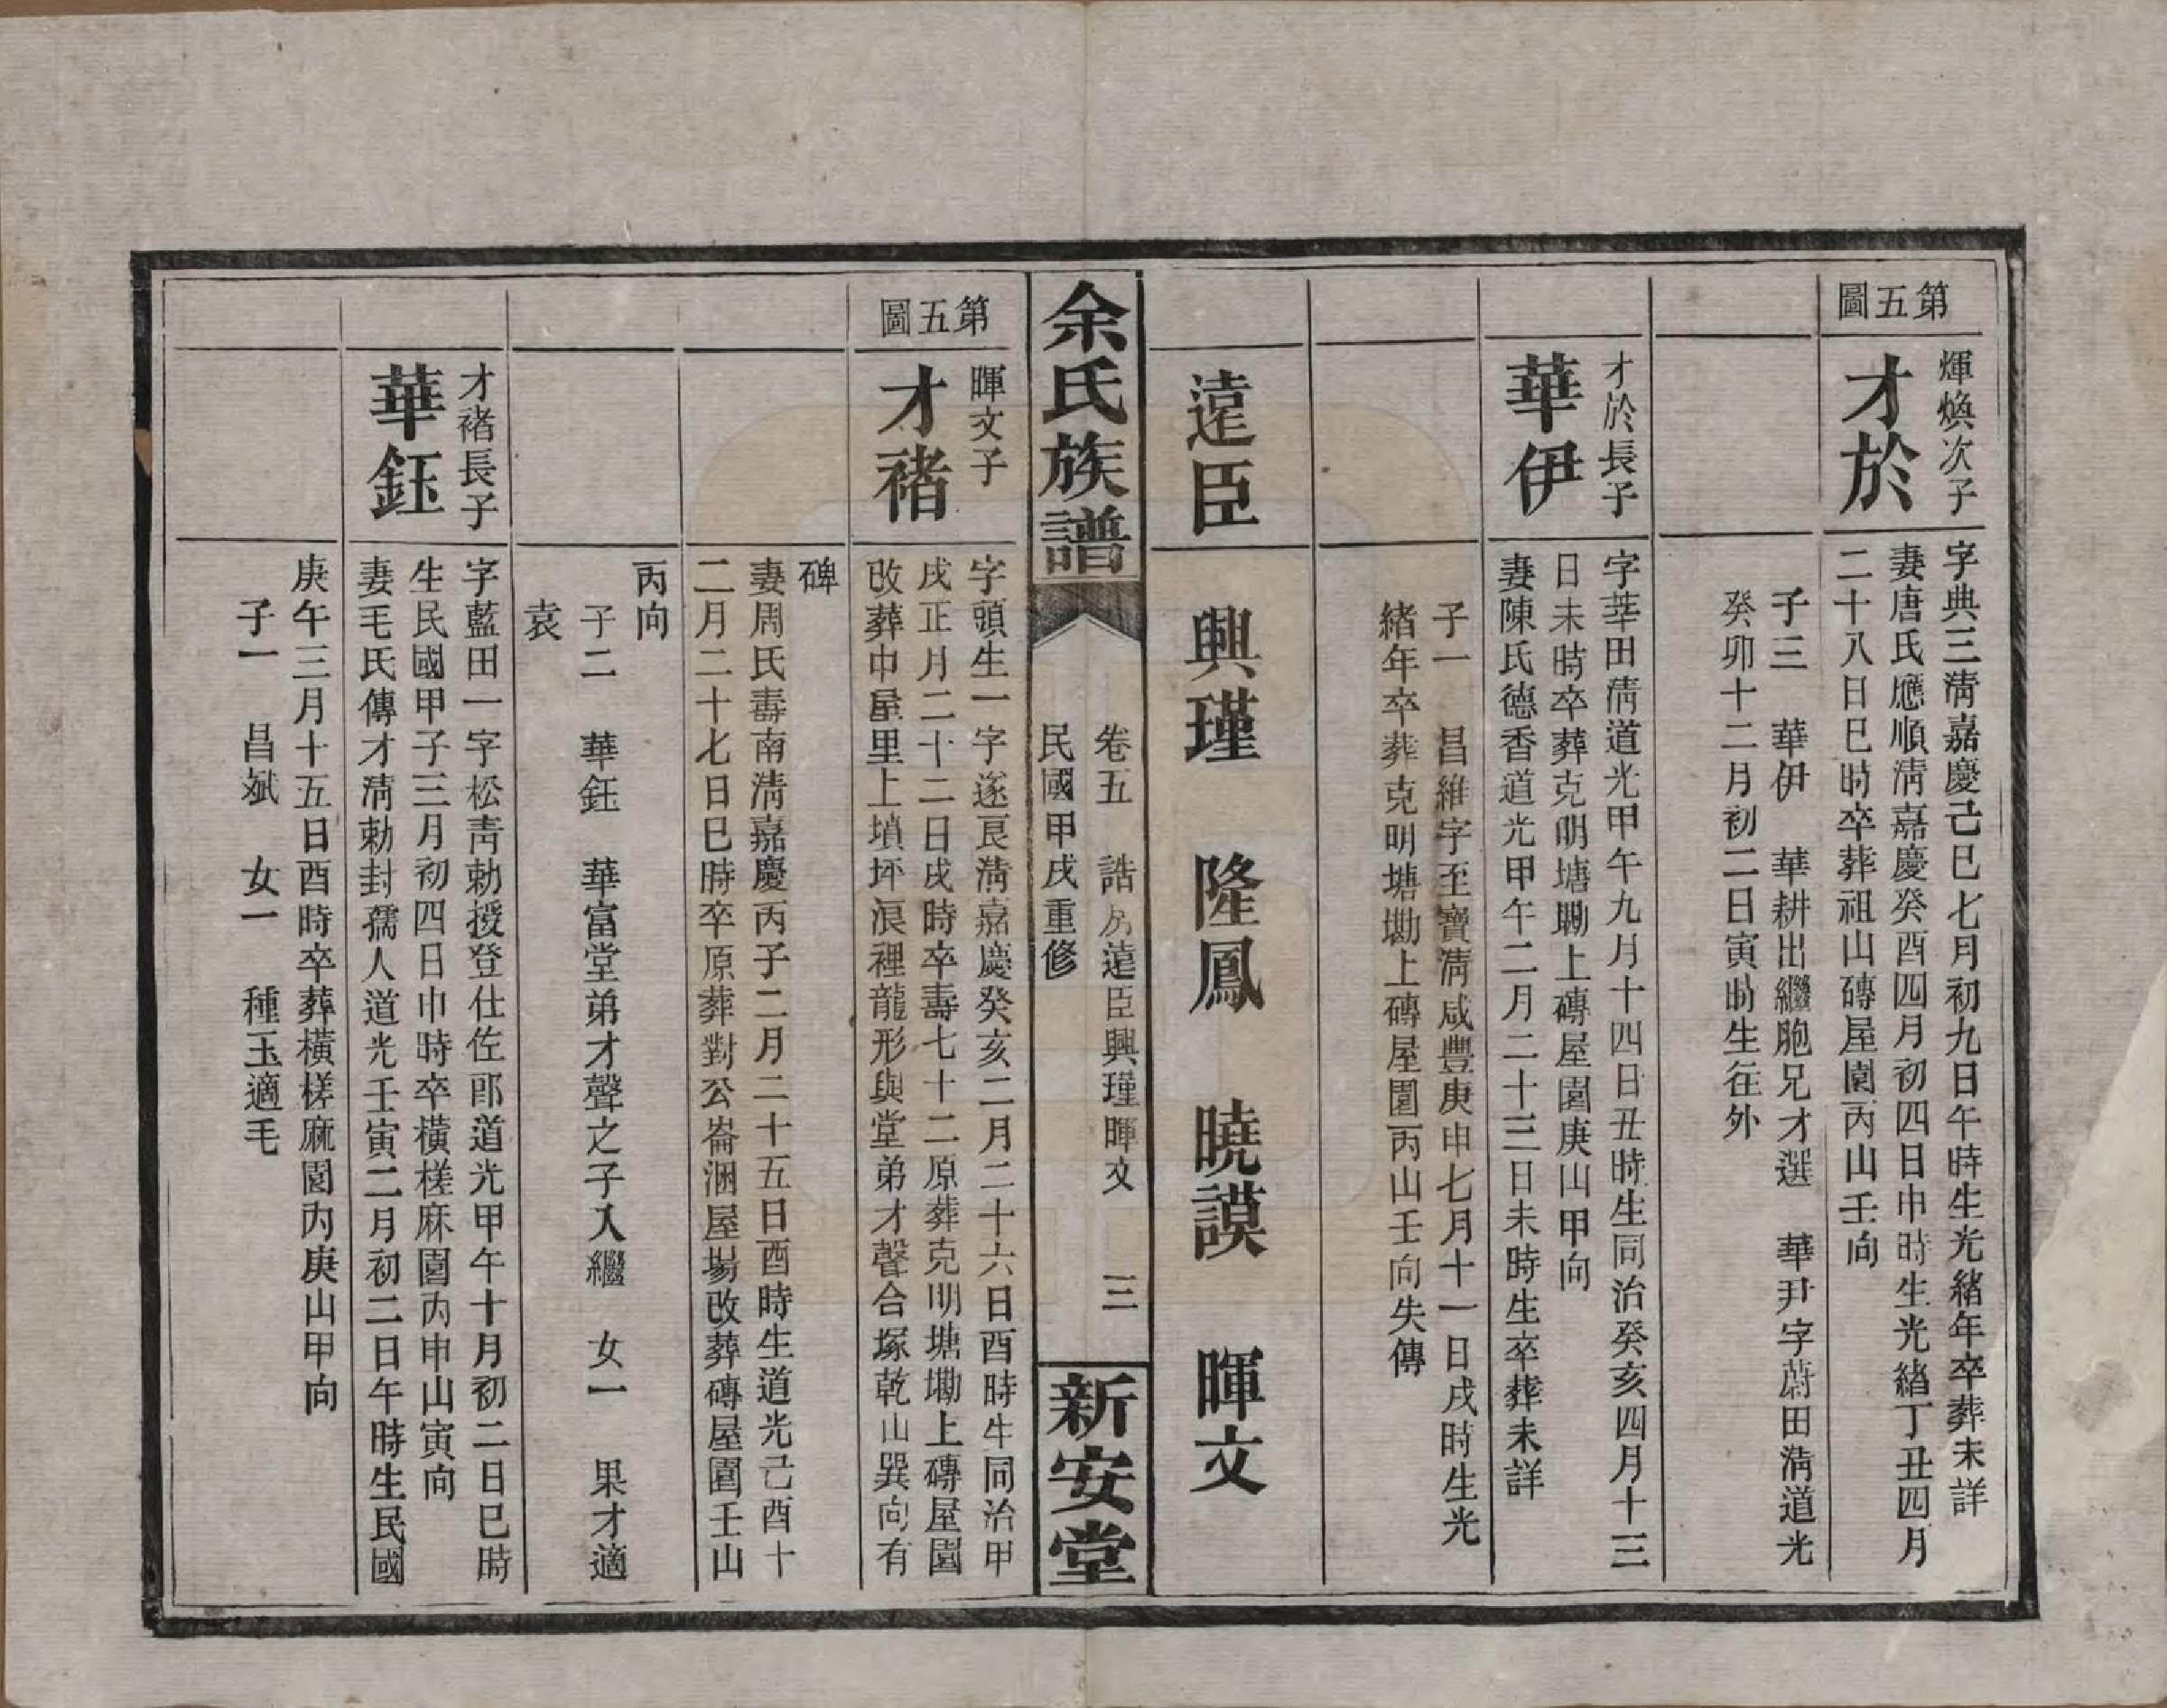 第五圖
輝煥次子
才於
字典三淸嘉慶己巳七月初九日午時生光緒年卒葬未詳
妻唐氏應順淸嘉慶癸酉四月初四日申時生光緒丁丑四月
二十八日巳時卒葬祖山磚屋園丙山壬向
子三　華伊　華耕出繼胞兄才選　華尹字蔚田淸道光
癸卯十二月初二日寅時生在外
才於長子
華伊
字莘田淸道光甲午九月十四日丑時生同治癸亥四月十三
日未時卒葬克明塘墈上磚屋園庚山甲向
妻陳氏德香道光甲午二月二十三日未時生卒葬未詳
子一　昌維字至寶淸咸豐庚申七月十一日戌時生光
緒年卒葬克明塘墈上磚屋園丙山壬向失傳
遠臣　興瑾　隆鳳　曉謨　暉文
余氏族譜
卷五　誥房遠臣興瑾暉文　三
民國甲戌重修
新安堂
第五圖
暉文子
才禇
字頭生一字遂良淸嘉慶癸亥二月二十六日酉時生同治甲
戌正月二十二日戌時卒壽七十二原葬克明塘墈上磚屋園
改葬中屋里上墳坪浪裡龍形與堂弟才聲合塚乾山巽向有
碑
妻周氏壽南淸嘉慶丙子二月二十五日酉時生道光己酉十
二月二十七日巳時卒原葬對公崙涃屋塲改葬磚屋園壬山
丙向
子二　華鈺　華富堂弟才聲之子入繼　女一　果才適
袁
才禇長子
華鈺
字藍田一字松靑勅授登仕佐郎道光甲午十月初二日巳時
生民國甲子三月初四日巾時卒橫槎麻園內申山寅向
妻毛氏傳才淸勅封孺人道光壬寅二月初二日午時生民國
庚午三月十五日酉時卒葬橫槎麻園內庚山甲向
子一　昌斌　女一　種玉適毛